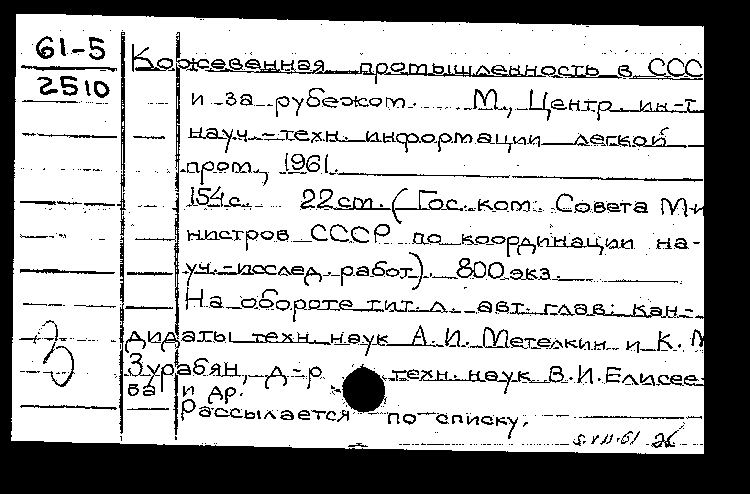 61-5
2510
Кожевенная промышленность в ССС
и за рубежом. М., Центр. ин-т
науч.-техн. информации легкой
пром., 1961.
154 с. 22 см. (Гос. ком. Совета Ми
нистров СССР по координации на-
уч.-исслед. работ). 800 экз.
На обороте тит. л. авт. глав: кан-
дидаты техн. наук А.И. Метелкин и К. М
Зурабян, д-р техн. наук В.И. Елисее-
ва и др.
Рассылается по списку.